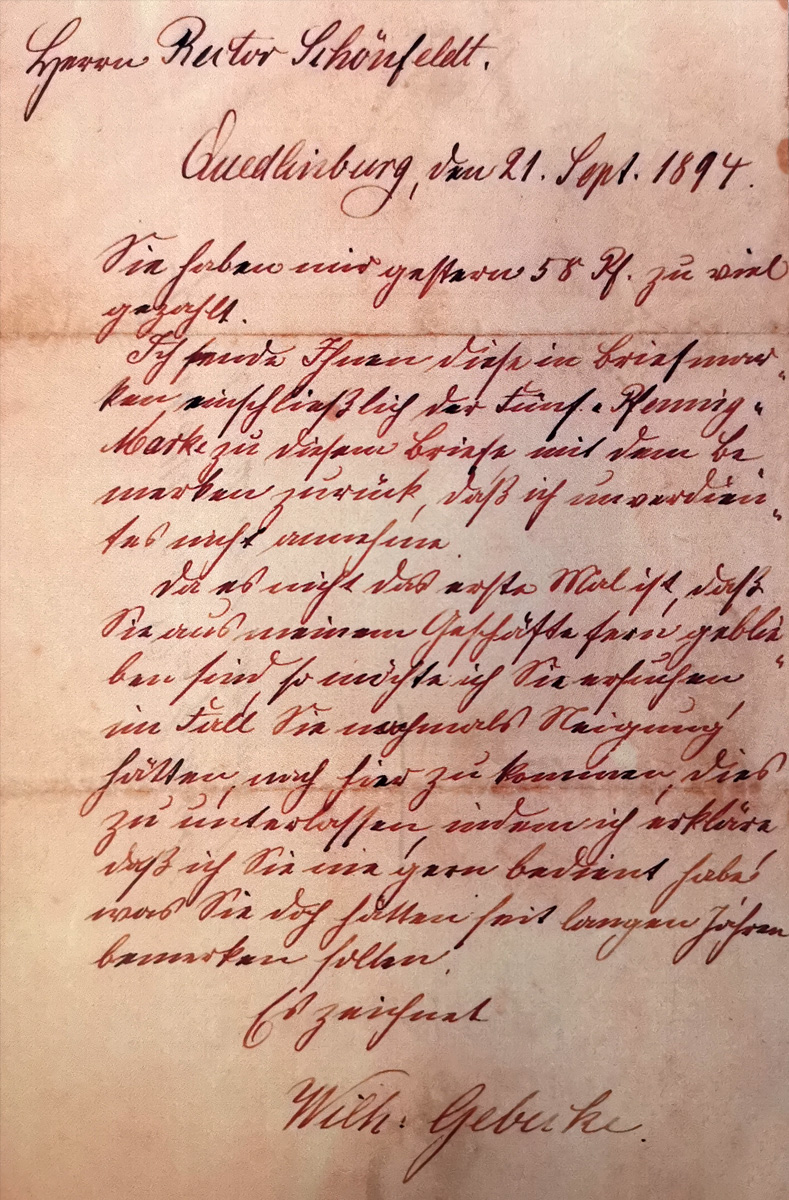 Herrn Rector Schönfeldt.
Quedlinburg, den 21. Sept. 1894.
Sie haben mir gestern 58 Pf. zu viel
gezahlt.
Ich sende Ihnen diese in Briefmar-
ken einschließlich der Fünf-Pfennig-
Marke zu diesem Briefe mit dem Be
merken zurück, daß ich unverdien-
tes nicht annehme.
Da es nicht das erste Mal ist, daß
Sie aus meinem Geschäfte fern geblie-
ben sind, so möchte ich Sie ersuchen,
im Fall Sie nochmals Neigung
hätten, nach hier zu kommen, dies
zu unterlassen, indem ich erkläre,
daß ich Sie nie gern bedient habe,
was Sie doch hätten seit langen Jahren
bemerken sollen.
Es zeichnet
Wilh.